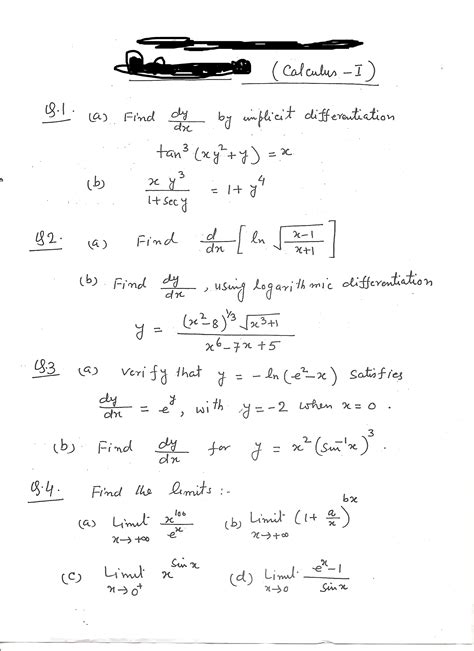 (Calculus - I)
Q.1. (a) Find dy/dx by implicit differentiation
tan³(xy²+y) = x
(b) x y³/(1+sec y) = 1+y⁴
Q2. (a) Find d/dx [ln √((x-1)/(x+1))]
(b) Find dy/dx, using logarithmic differentiation
y = (x²-8)^(1/3) √(x³+1) / (x⁶-7x+5)
Q.3 (a) verify that y = -ln(e²-x) satisfies
dy/dx = e^y, with y=-2 when x=0.
(b) Find dy/dx for y = x²(sin⁻¹x)³.
Q.4. Find the limits :-
(a) Limit x→+∞ x¹⁰⁰/e^x (b) Limit x→+∞ (1+a/x)^bx
(c) Limit x→0⁺ x^sin x (d) Limit x→0 (e^x-1)/sin x